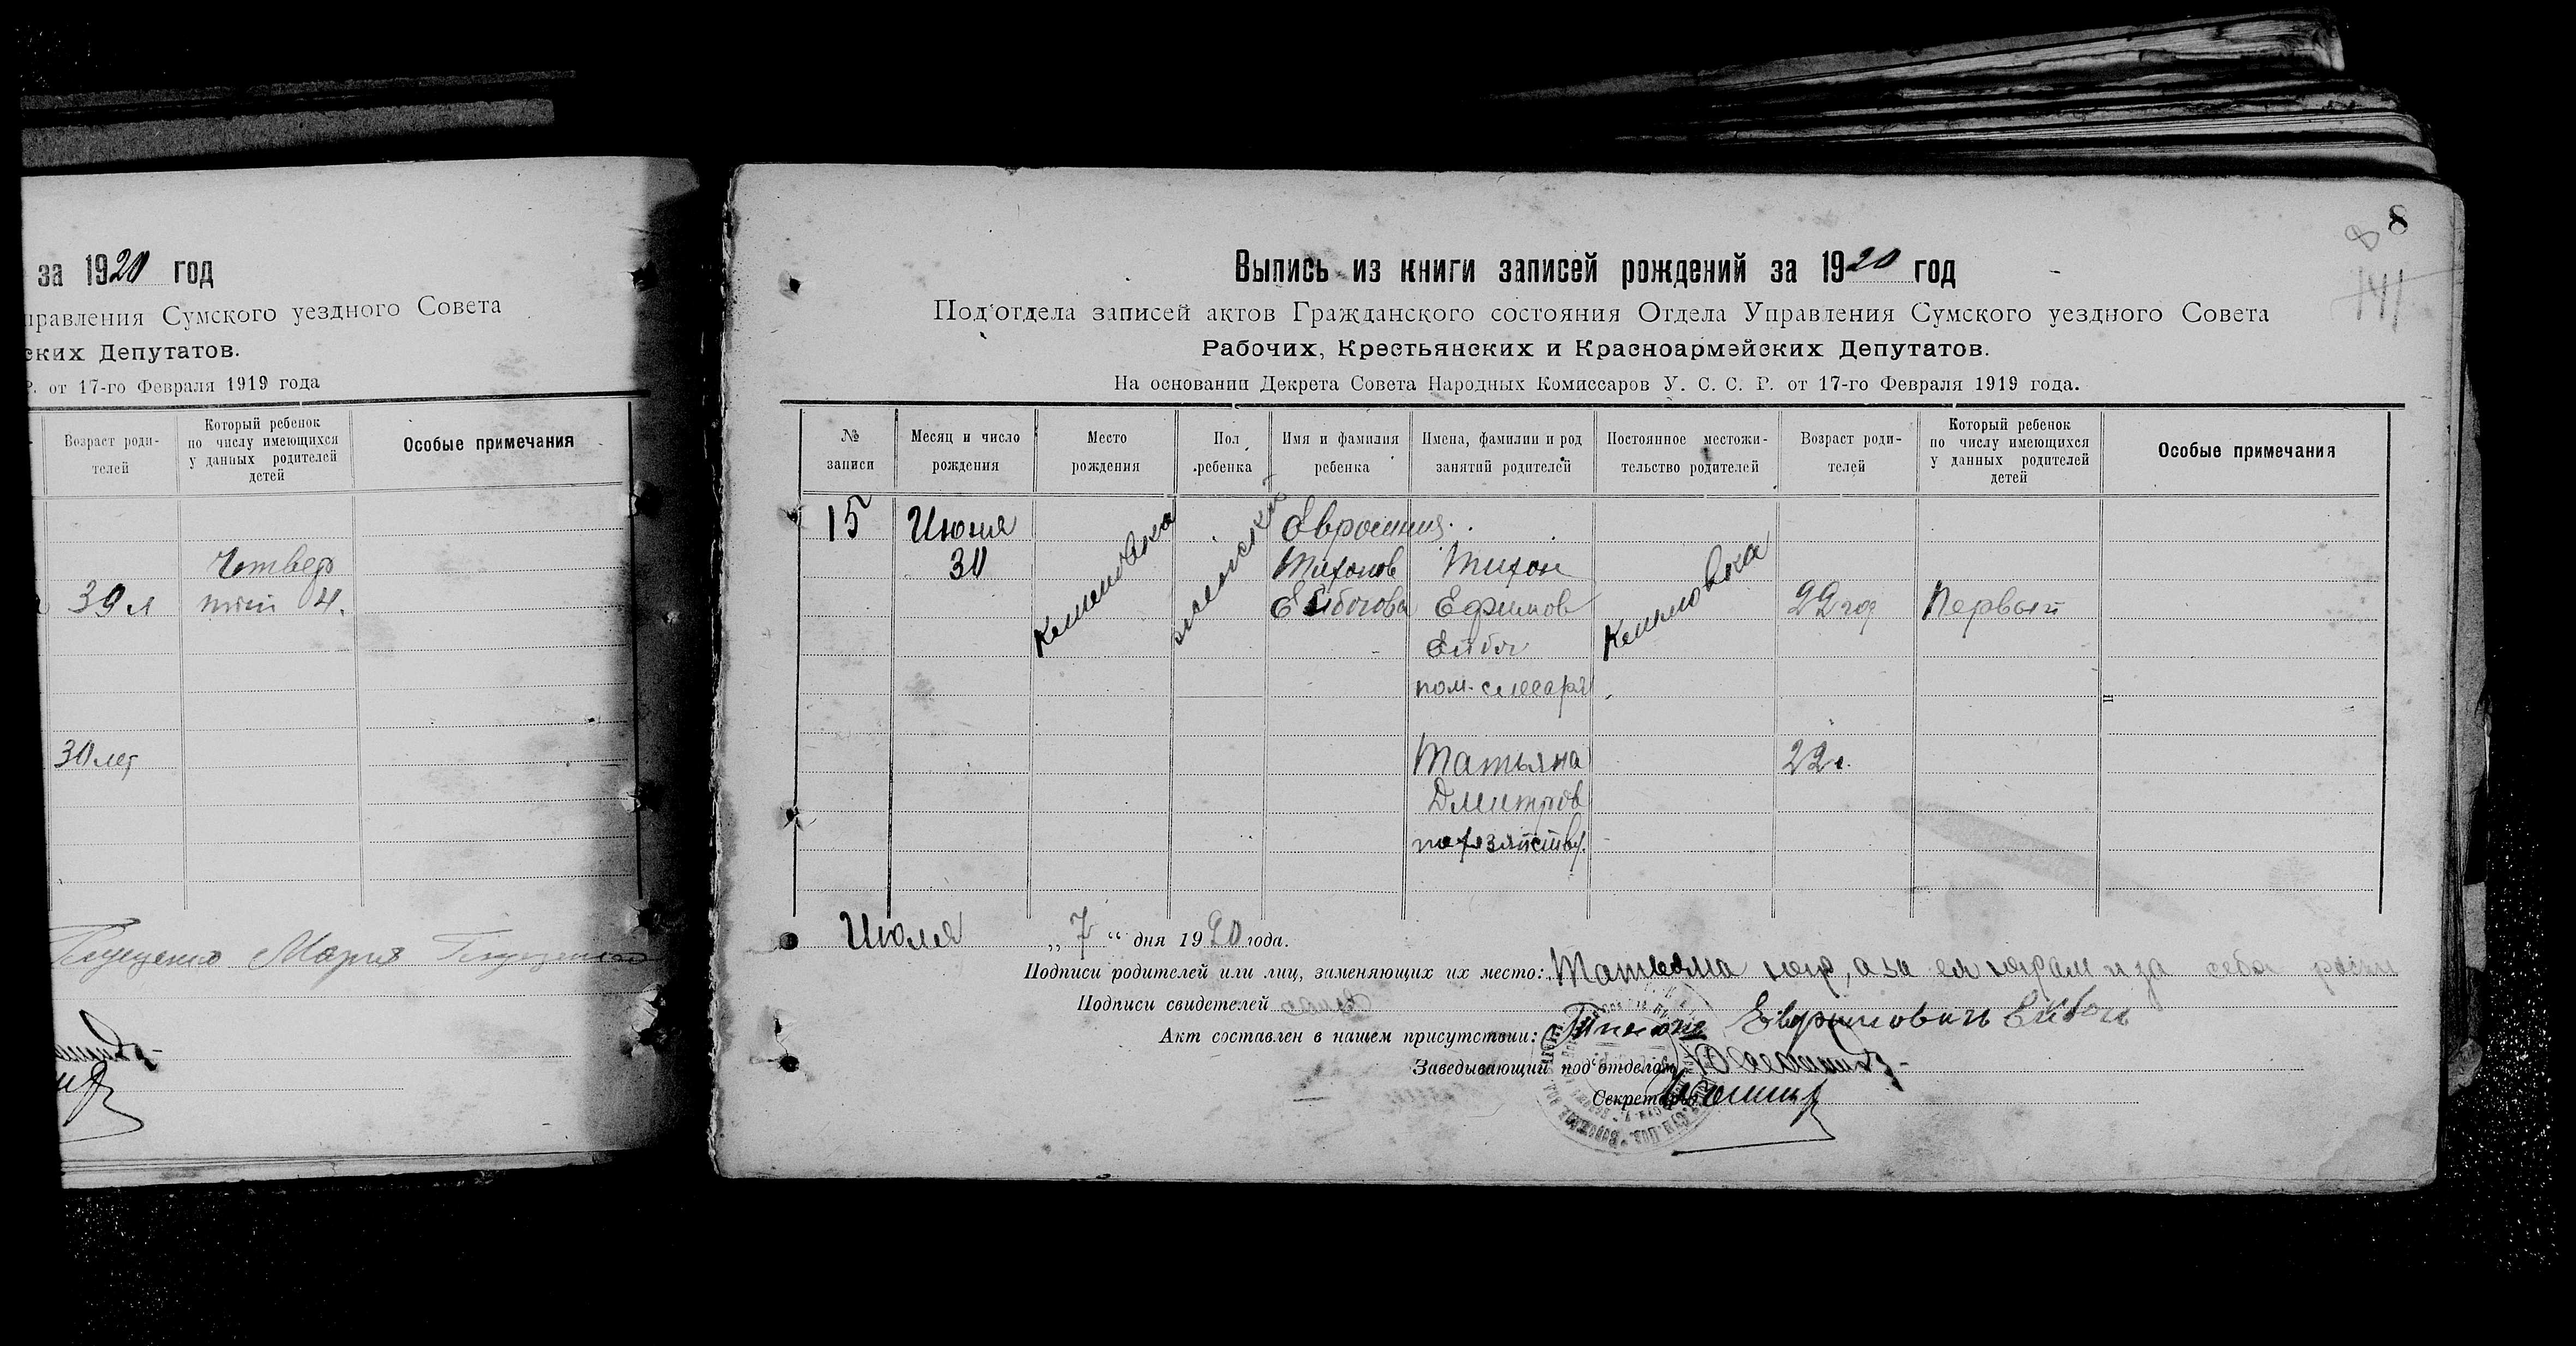 за 1920 год
правления Сумского уездного Совета
ских Депутатов.
Р. от 17-го Февраля 1919 года
Возраст роди-
телей
Который ребенок
по числу имеющихся
у данных родителей
детей
Особые примечания
Четвер
39 л
тый 4.
30 лет
Мария
8
8
141
Выпись из книги записей рождений за 1920 год
Под'отдела записей актов Гражданского состояния Отдела Управления Сумского уездного Совета
Рабочих, Крестьянских и Красноармейских Депутатов.
На основании Декрета Совета Народных Комиссаров У. С. С. Р. от 17-го Февраля 1919 года.
№
записи
Месяц и число
рождения
Место
рождения
Пол
ребенка
Имя и фамилия
ребенка
Имена, фамилии и род
занятий родителей
Постоянное местожи-
тельство родителей
Возраст роди-
телей
Который ребенок
по числу имеющихся
у данных родителей
детей
Особые примечания
15
Июня
30
женский
Тихонов
Тихон
Ефимов
пом. слесаря
22 го
Первый
Татьяна
Дмитров
по хозяйству.
22 г.
Июля „7“ дня 1920 года.
Подписи родителей или лиц, заменяющих их место: Татьяна
Подписи свидетелей
Акт составлен в нашем присутствии:
Заведывающий под'отделом
Секретарь